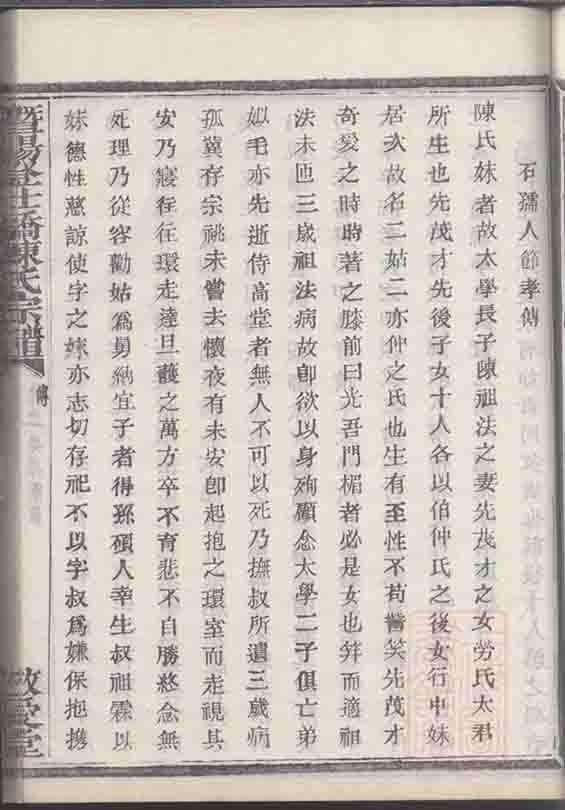 石孺人節孝傳
陳氏妹者故太學長子陳祖法之妻先茂才之女勞氏太君
所生也先茂才先後子女十人各以伯仲氏之後女行中妹
居次故名二姑二亦仲之氏也生有至性不苟訾笑先茂才
奇愛之時時著之膝前曰光吾門楣者必是女也笄而適祖
法未匝三歲祖法病故卽欲以身殉顧念太學二子俱亡弟
姒毛亦先逝侍高堂者無人不可以死乃撫叔所遺三歲病
孤冀存宗祧未嘗去懷夜有未安卽起抱之環室而走視其
安乃寢往往環走達旦護之萬方卒不育悲不自勝終念無
死理乃從容勸姑爲舅納宜子者得孫碩人幸生叔祖霖以
妹德性慈諒使字之妹亦志切存祀不以字叔爲嫌保抱攜
暨陽 橋陳氏宗譜
傳
敬愛堂